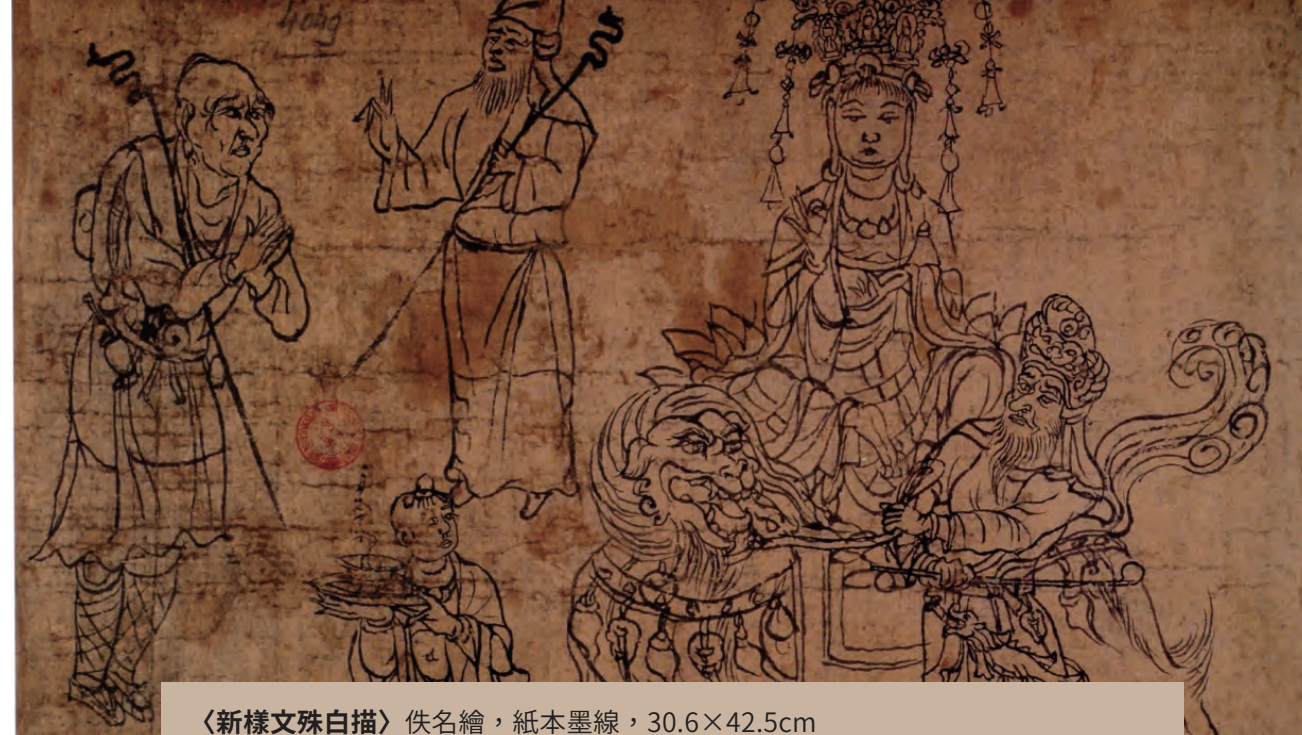 〈新樣文殊白描〉佚名繪，紙本墨線，30.6×42.5cm